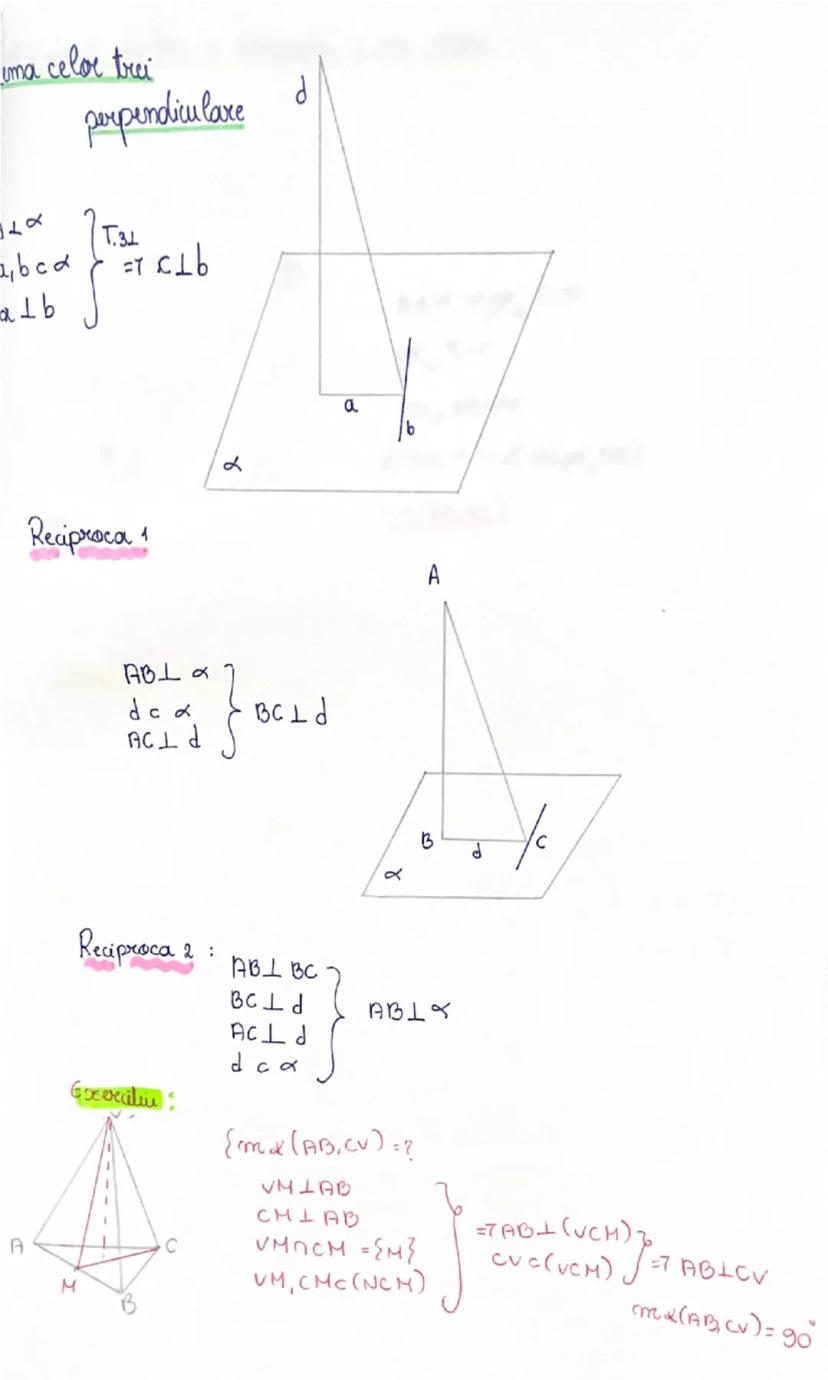 ema celor trei
perpendiculare
d
⊥ α
a, b ⊂ α } T.3⊥ => c ⊥ b
a ⊥ b
a
b
α
Reciproca 1
A
AB ⊥ α
d ⊂ α } BC ⊥ d
AC ⊥ d
B d C
α
Reciproca 2 :
AB ⊥ BC
BC ⊥ d
AC ⊥ d } AB ⊥ α
d ⊂ α
Exercitiu :
V
A
C
M
B
{ m∡(AB, CV) = ?
VM ⊥ AB
CM ⊥ AB
VM ∩ CM = {M}
VM, CM ⊂ (VCM)
=> AB ⊥ (VCM)
CV ⊂ (VCM) } => AB ⊥ CV
m∡(AB, CV) = 90°